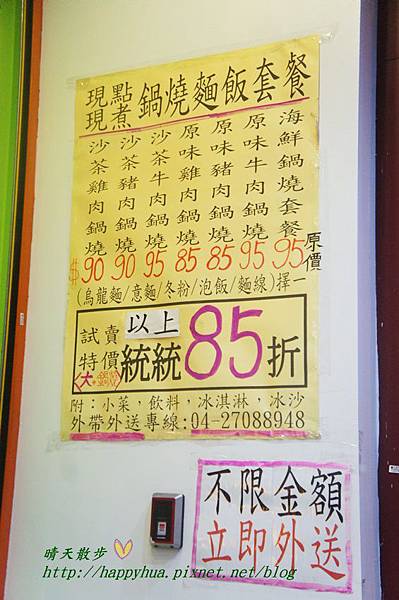 現點現煮 鍋燒麵飯套餐
海鮮鍋燒套餐 95 原價
原味牛肉鍋燒 95
原味豬肉鍋燒 85
原味雞肉鍋燒 85
沙茶牛肉鍋燒 95
沙茶豬肉鍋燒 90
沙茶雞肉鍋燒 $90
(烏龍麵/意麵/冬粉/泡飯/麵線)擇一
試賣特價 以上統統85折
附：小菜，飲料，冰淇淋，冰沙
外帶外送專線:04-27088948
不限金額
立即外送
晴天散步
http://happyhua.pixnet.net/blog